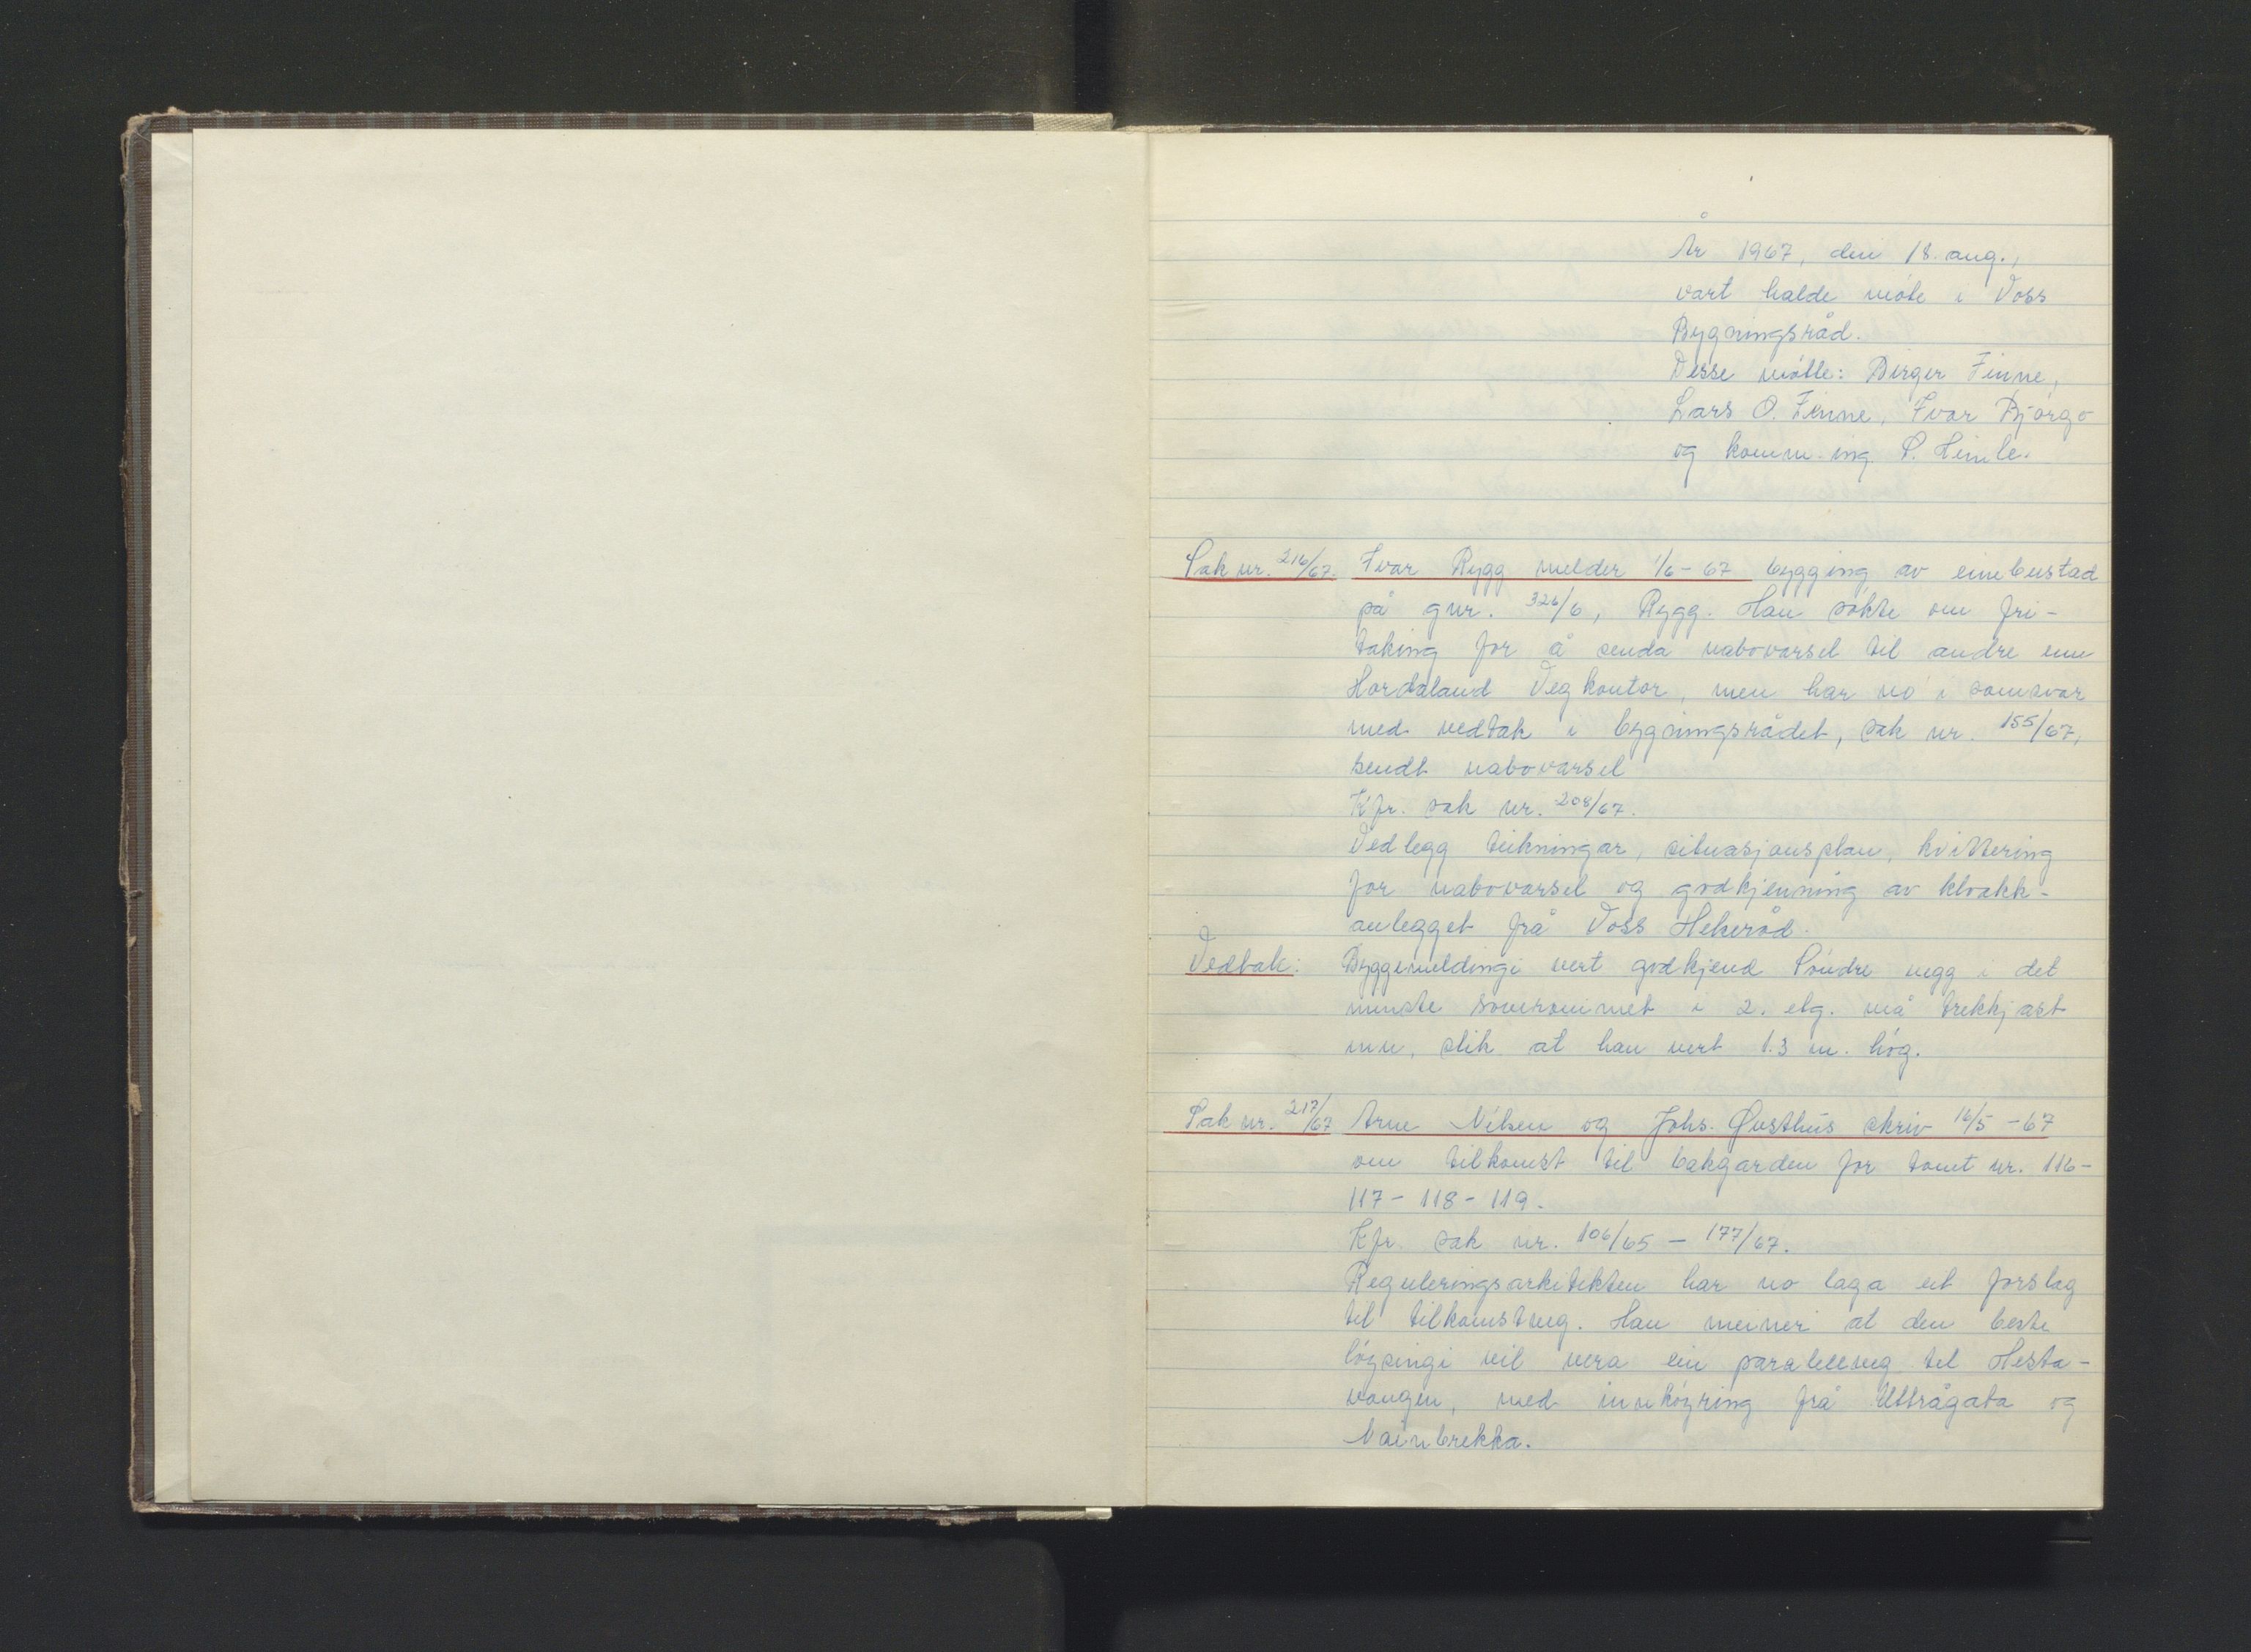 År 1967, den 18. aug.,
vart halde møte i Voss
Bygningsråd.
Desse møtte: Birger Finne,
Lars O. Finne, Ivar Bjørgo
og komm. ing. S. Himle.
Sak nr. 216/67. Ivar Rygg melder 1/6-67 bygging av einebustad
på gnr. 326/6, Rygg. Han søkte om fri-
taking for å senda nabovarsel til andre enn
Hordaland Vegkontor, men har no i samsvar
med vedtak i bygningsrådet, sak nr. 155/67,
sendt nabovarsel
Kfr. sak nr. 208/67.
Vedlegg teikningar, situasjonsplan, kvittering
for nabovarsel og godkjenning av kloakk-
anlegget frå Voss Helseråd.
Vedtak: Byggemeldingi vert godkjend. Søndre vegg i det
minste soverommet i 2. etg. må trekkjast
inn, slik at han vert 1.3 m. høg.
Sak nr. 217/67 Arne Nilsen og Johs. Øvsthus skriv 16/5-67
om tilkomst til bakgarden for tomt nr. 116-
117-118-119.
Kfr. sak nr. 106/65 - 177/67.
Reguleringsarkitekten har no laga eit forslag
til tilkomstveg. Han meiner at den beste
løysingi vil vera ein paralellveg til Hesta-
vangen, med innkøyring frå Uttrågata og